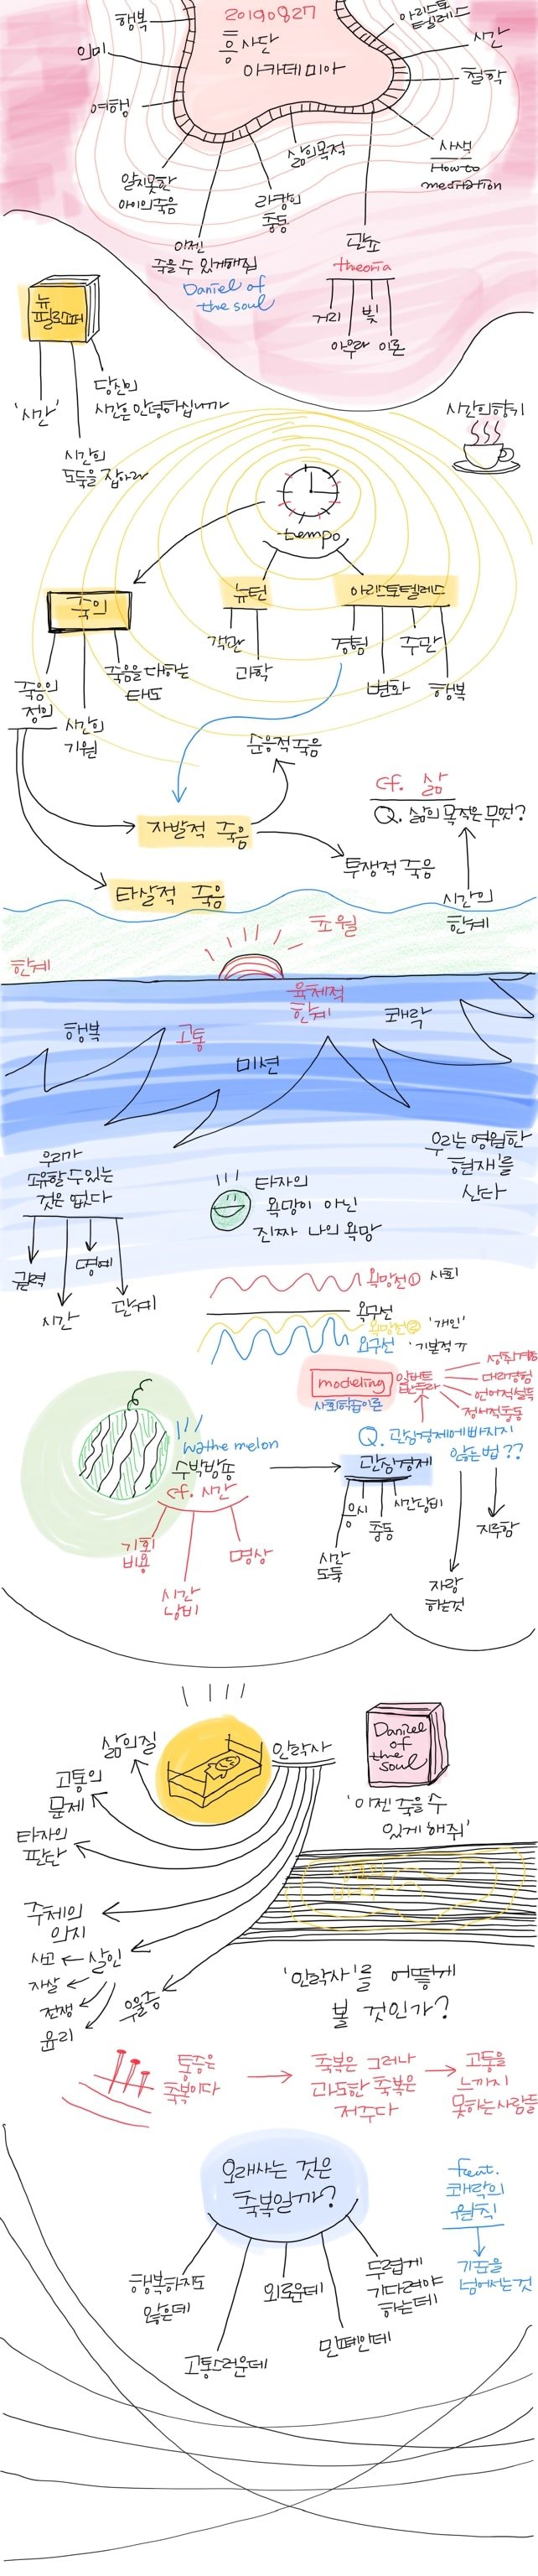 20190827
흥사단
아카데미아
행복
의미
여행
알지못한
아이의죽음
이젠
죽을 수 있게해줘
Daniel of
the soul
라캉의
충동
삶의목적
관조
theoria
거리
아우라
빛
이론
사색
How to
meditation
철학
시간
아리스토
텔레스
뉴
필로소퍼
'시간'
시간의
도둑을 잡아라
당신의
시간은 안녕하십니까
시간의향기
tempo
뉴턴
객관
과학
아리스토텔레스
경험
변화
주관
행복
죽음의
정의
시간의
기원
죽음을 대하는
태도
순응적 죽음
자발적 죽음
투쟁적 죽음
타살적 죽음
cf. 삶
Q. 삶의 목적은 무엇?
시간의
한계
초월
한계
육체적
한계
행복
고통
미션
쾌락
우리가
소유할 수 있는
것은 없다
권력
시간
명예
관계
타자의
욕망이 아닌
진짜 나의 욕망
우리는 영원한
'현재'를
산다
욕망선① 사회
욕구선
욕망선② '개인'
요구선 '기본적'
modeling
사회학습이론
성취경험
대리경험
언어적설득
정서적충동
Wathe melon
수박방송
cf. 시간
기회
비용
시간
낭비
명상
Q. 관심경제에 빠지지
않는 법??
관심경제
시간
도둑
응시
충동
시간낭비
자랑
하는것
지루함
안락사
삶의질
고통의
문제
타자의
판단
주체의
의지
살인
사고
자살
전쟁
윤리
우울증
Daniel
of
the
Soul
'이젠 죽을 수
있게 해줘'
'안락사'를 어떻게
볼 것인가?
통증은
축복이다
축복은 그러나
과도한 축복은
저주다
고통을
느끼지
못하는사람들
오래사는 것은
축복일까?
행복하지도
않은데
고통스러운데
외로운데
민폐인데
두렵게
기다려야
하는데
feat.
쾌락의
원칙
기준을
넘어서는 것